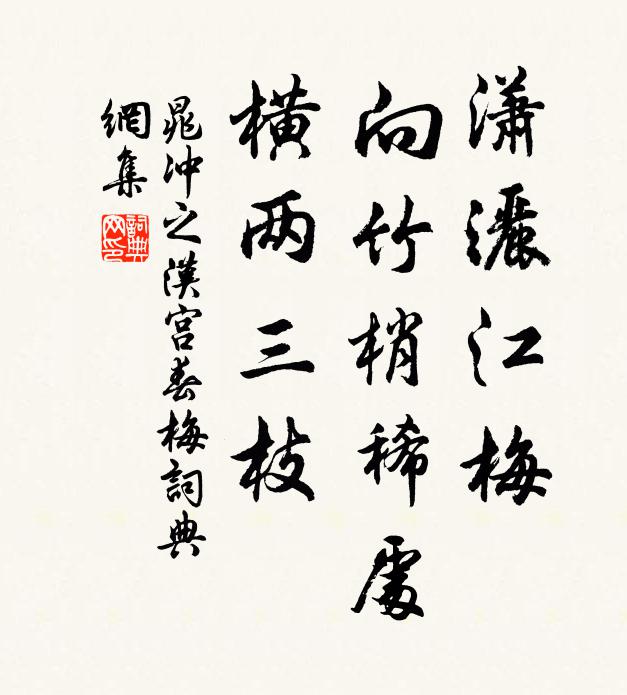 瀟灑江梅
向竹梢稀處
橫两三枝
晁冲之漢宮春梅詞典
網集
詞典网印